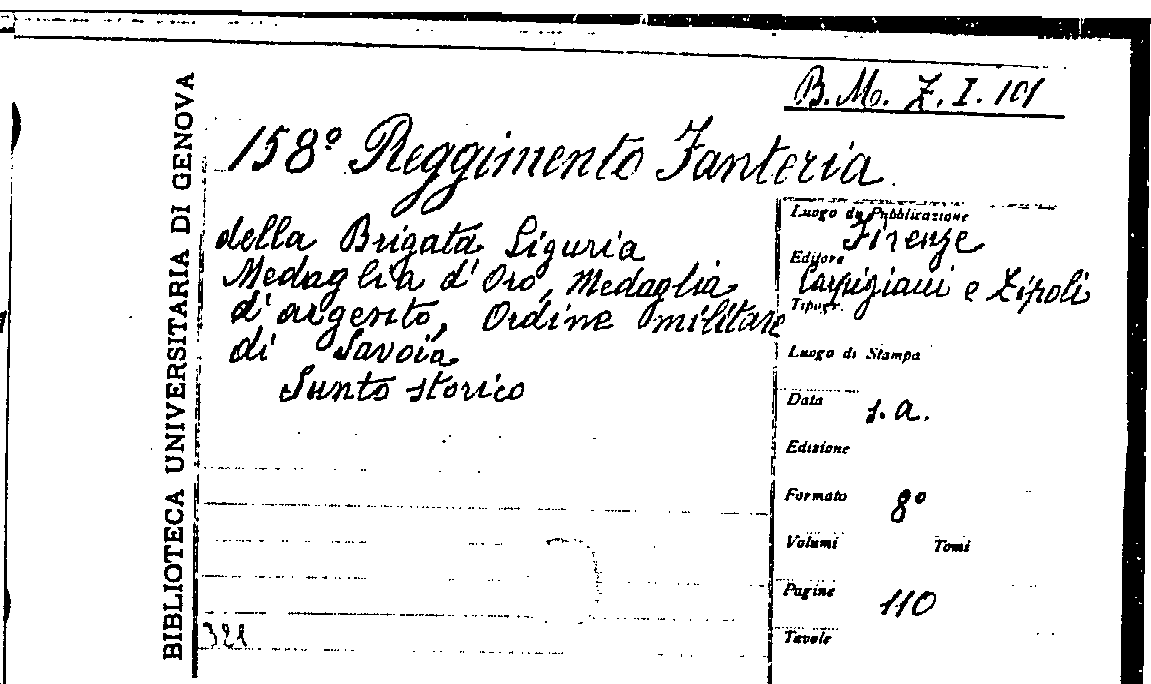 B.M. Z.I. 101
BIBLIOTECA UNIVERSITARIA DI GENOVA
158º Reggimento Fanteria
della Brigata Liguria
Medaglia d'Oro, Medaglia
d'argento, Ordine militare
di Savoia
Sunto storico
321
Luogo di Pubblicazione
Firenze
Editore
Carpigiani e Zipoli
Tipogr.
Luogo di Stampa
Data s.a.
Edizione
Formato 8º
Volumi Tomi
Pagine 110
Tavole